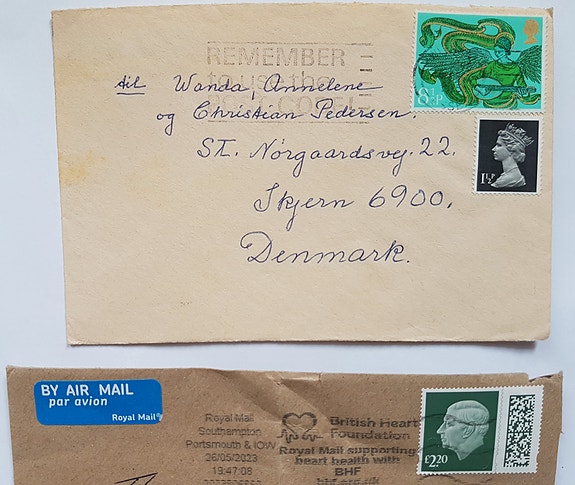 REMEMBER
to use the
POST CODE
8½P
til Wanda, Annelene
og Christian Pedersen.
ST. Nørgaardsvej. 22.
1½P
Skjern 6900.
Denmark.
BY AIR MAIL
par avion
Royal Mail
Royal Mail
Southampton
Portsmouth & IOW
26/05/2023
19:47:08
British Heart
Foundation
Royal Mail supporting
heart health with
BHF
bhf.org.uk
£2.20